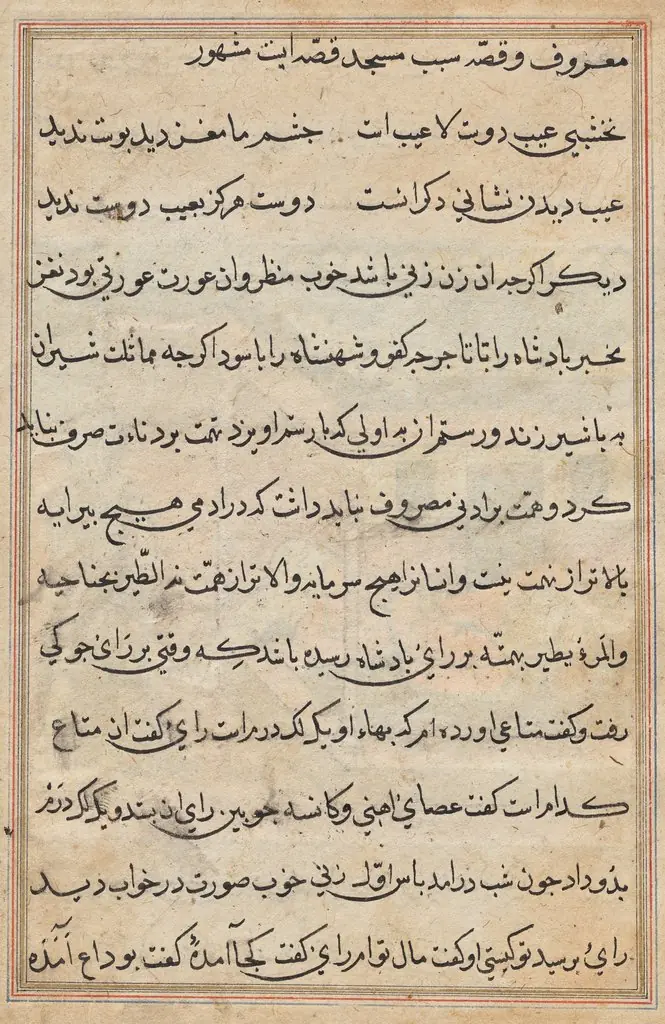 معروف و قصّه سبب مسجد قصّه ایست مشهور
نخشبی عیب دوست لا عیب است چشم ما مغز دید پوست ندید
عیب دیدن نشانی دکرانست دوست هرکز بعیب دوست ندید
دیکر اکرجه ان زن زنی باشد خوب منظر وان عورت عورتی بود نغز
مخبر بادشاه را تا تاجر جه کفو و شهنشاه را با سودا کرجه مماثلت شیران
به با شیر زند و رستم ان به اولی که با رستم اویزد نهمت بر دناءت صرف نباید
کرد و همّت بر ادنی مصروف نباید داشت که در ادمی هیج بیرایه
بالاتر از نهمت نیست و انسانرا هیج سرمایه والاتر از همّت نه الطّیر بجناحیه
والمرءُ یطیر بهمتّه بر رایُ بادشاه رسیده باشد که وقتی بر رایُ جوکی
رفت و کفت متاعی اورده ام که بهاء او یک لک درم است رایُ کفت ان متاع
کدام است کفت عصایُ اهنی و کانسه جوبین رای ان بستد و یک لک درم
بدو داد جون شب درامد باس اوّل زنی خوب صورت در خواب دید
رایُ برسید تو کیستی او کفت مال توام رایُ کفت کجا آمدهٔ کفت بوداع آمده